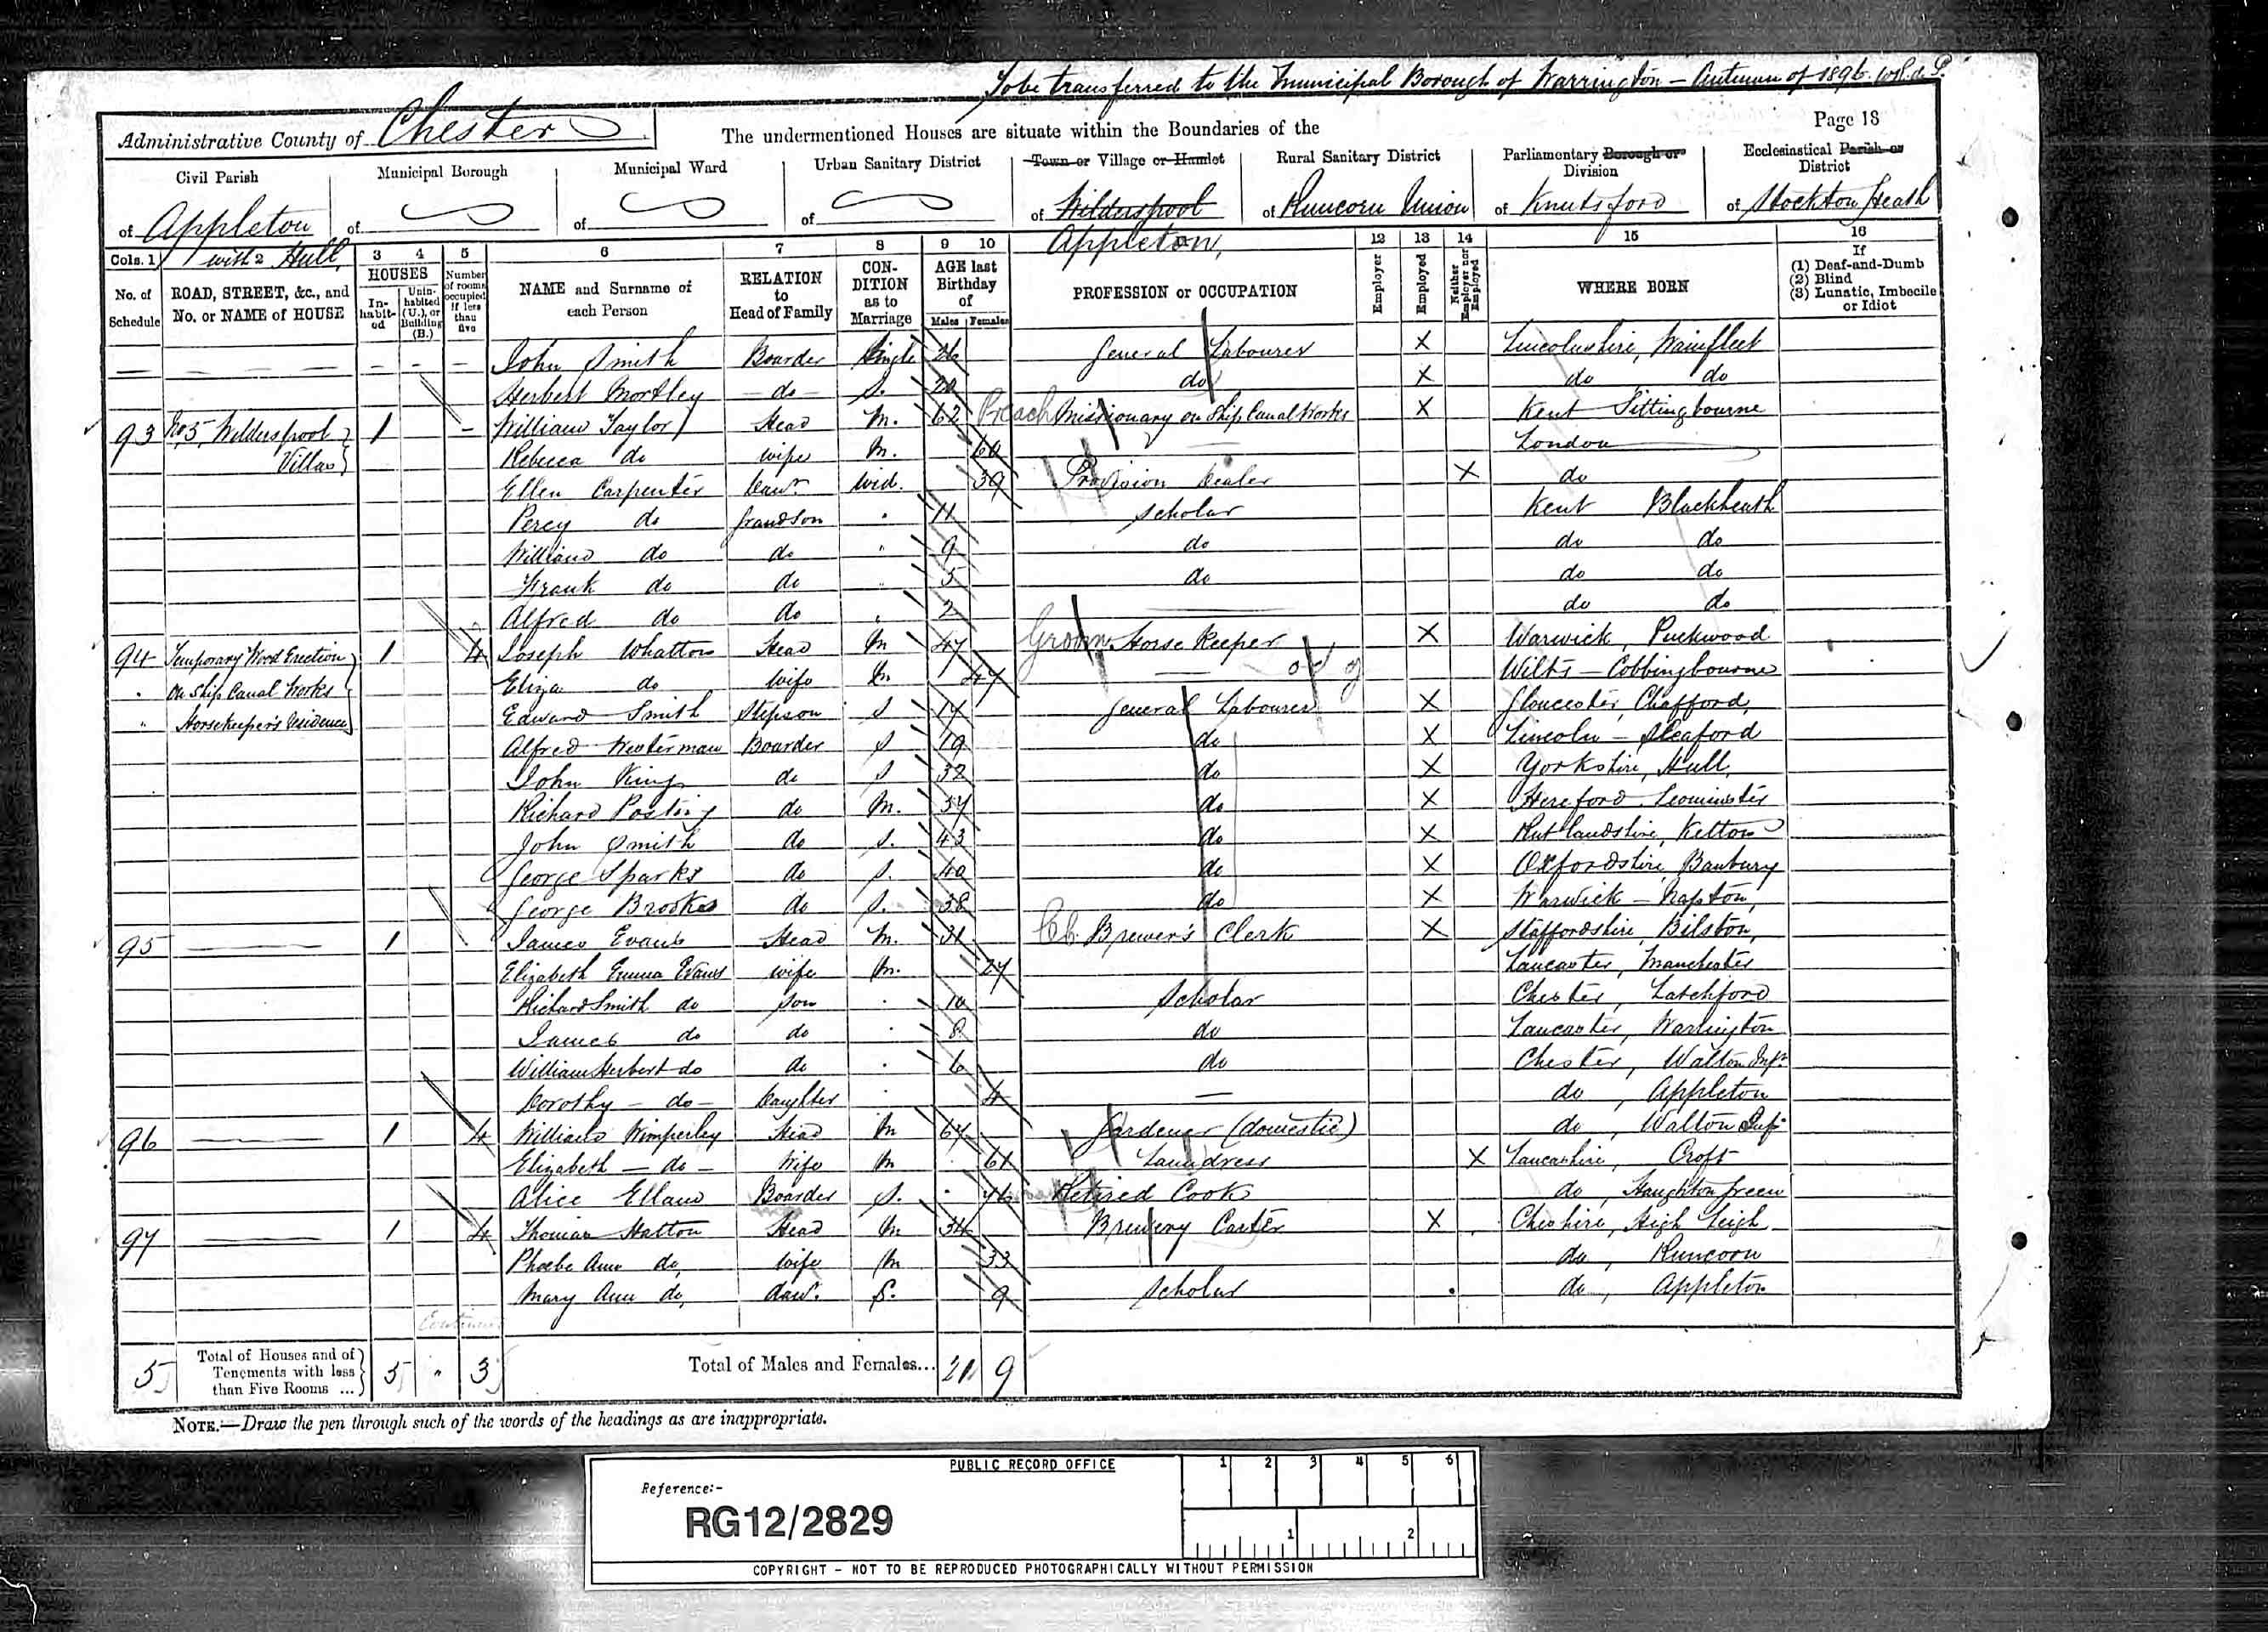 To be transferred to the Municipal Borough of Warrington - Autumn of 1896.
Page 18
Administrative County of Chester
The undermentioned Houses are situate within the Boundaries of the
Civil Parish
Municipal Borough
Municipal Ward
Urban Sanitary District
Town or Village or Hamlet
Rural Sanitary District
Parliamentary Borough or Division
Ecclesiastical Parish or District
of Appleton with Hull
of
of
of
of Wilderspool Appleton,
of Runcorn Union
of Knutsford
of Stockton Heath
Cols. 1 3 4 5 6 7 8 9 10 12 13 14 15 16
No. of Schedule
ROAD, STREET, &c., and No. or NAME of HOUSE
HOUSES
In-habit-ed
Unin-habited (U.), or Building (B.)
Number of rooms occupied if less than five
NAME and Surname of each Person
RELATION to Head of Family
CON-DITION as to Marriage
AGE last Birthday of
Males Females
PROFESSION or OCCUPATION
Employer
Employed
Neither Employer nor Employed
WHERE BORN
If
(1) Deaf-and-Dumb
(2) Blind
(3) Lunatic, Imbecile or Idiot
— — — — — John Smith Boarder Single 26 General Labourer X Lincolnshire, Wainfleet
Herbert Mortley - do - S. 20 do X do do
93 No 5 Wilderspool 1 - William Taylor Head M. 62 Preach Missionary on Ship Canal Works X Kent Sittingbourne
Villas Rebecca do wife M. 60 — London
Ellen Carpenter Daur. Wid. 39 Provision Dealer X do
Percy do Grandson 11 Scholar Kent Blackheath
William do do 9 do do do
Frank do do 5 do do do
Alfred do do 2 — do do
94 Temporary Wood Erection 1 4 Joseph Whatton Head M 47 Groom Horse Keeper X Warwick, Packwood
on Ship Canal Works Eliza do wife M 47 — Wilts - Cobbingbourne
Horsekeeper's Residence Edward Smith Stepson S 17 General Labourer X Gloucester, Chafford,
Alfred Westerman Boarder S 19 do X Lincoln - Sleaford
John King do S 32 do X Yorkshire, Hull,
Richard do M. 37 do X Hereford. Leominster
John Smith do S. 43 do X Rutlandshire, Ketton
George Sparks do S. 40 do X Oxfordshire, Banbury
George Brookes do S. 38 do X Warwick - Napton,
95 — 1 James Evans Head M. 31 Brewer's Clerk X Staffordshire, Bilston,
Elizabeth Emma Evans wife M. 27 Lancaster, Manchester
Richard Smith do son 10 Scholar Chester, Latchford
James do do 8 do Lancaster, Warrington
William Herbert do do 6 do Chester, Walton Infr.
Dorothy - do - Daughter 4 — do, Appleton
96 — 1 4 William Wimperley Head M 67 Gardener (domestic) do, Walton Infr.
Elizabeth - do - Wife M 61 Laundress X Lancashire, Croft
Alice Ellam Boarder S. 76 Retired Cook do, Haughton Green
97 — 1 4 Thomas Hatton Head M 34 Brewery Carter X Cheshire, High Leigh
Phoebe Ann do, wife M 33 do, Runcorn
Mary Ann do, daur. S. 9 Scholar do, Appleton
5 Total of Houses and of Tenements with less than Five Rooms ... 5 " 3 Total of Males and Females... 21 9
NOTE.—Draw the pen through such of the words of the headings as are inappropriate.
PUBLIC RECORD OFFICE
1 2 3 4 5 6
Reference:-
RG12/2829
1 2
COPYRIGHT - NOT TO BE REPRODUCED PHOTOGRAPHICALLY WITHOUT PERMISSION